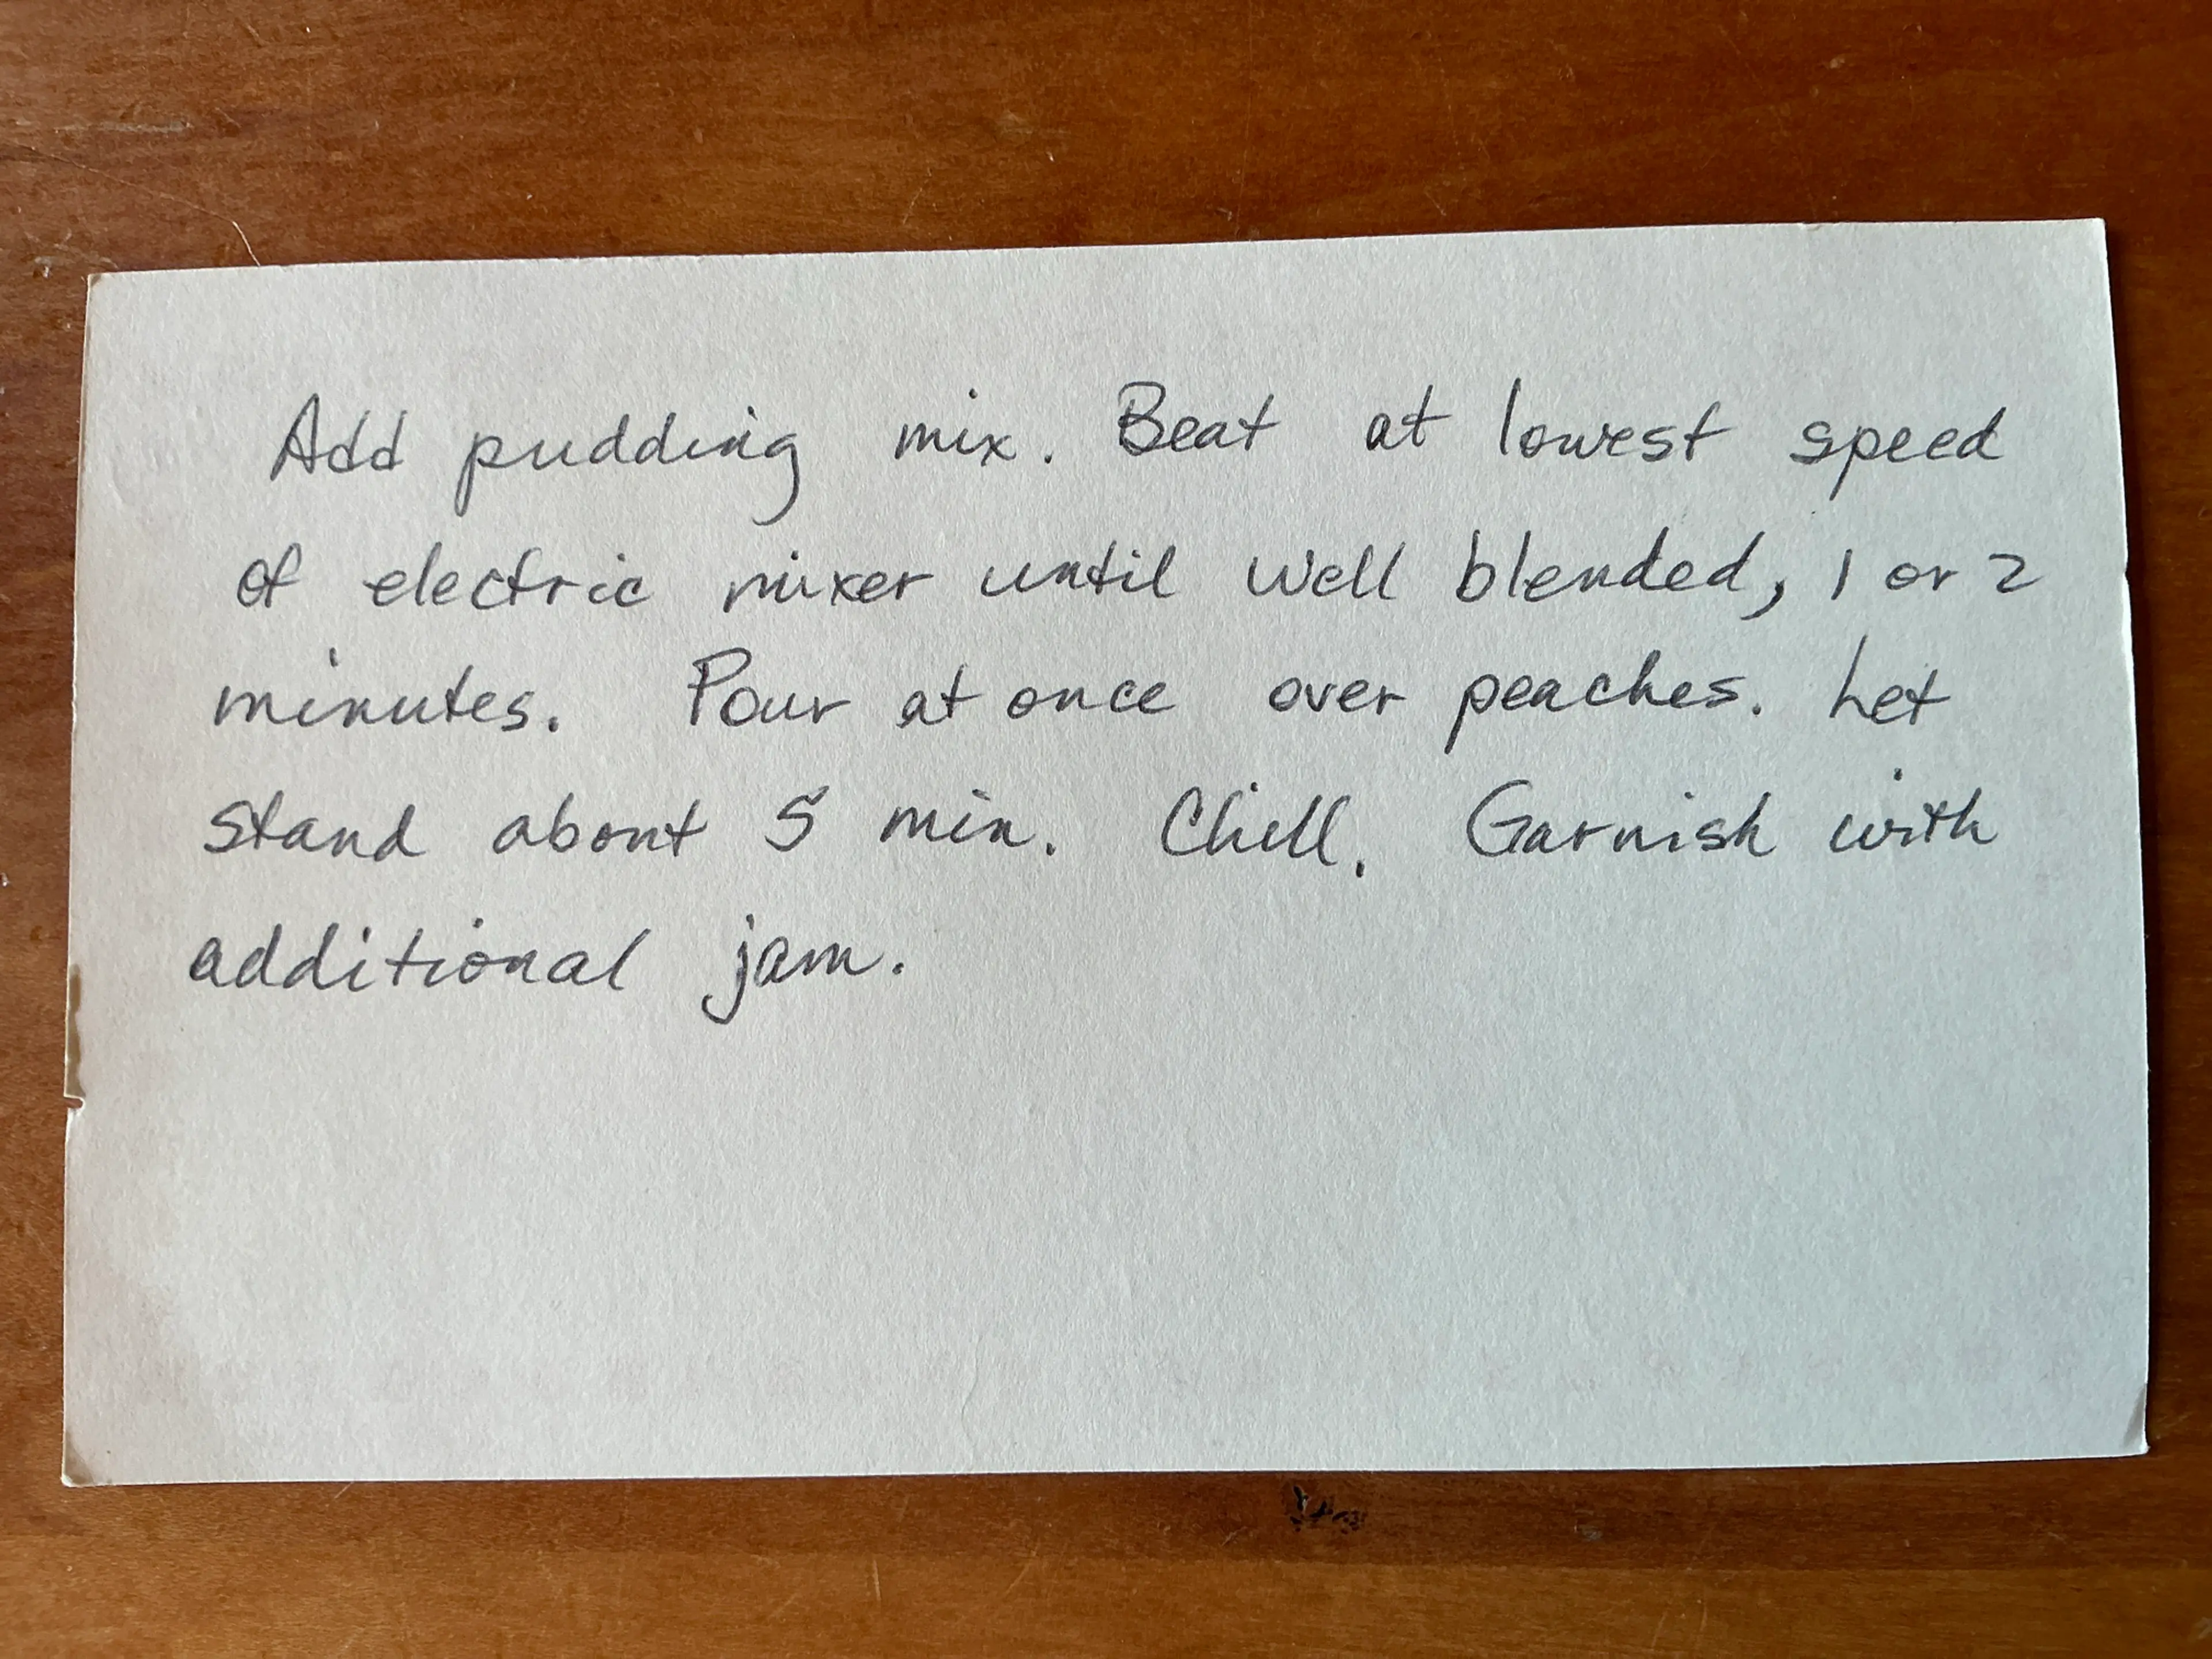 Add pudding mix. Beat at lowest speed
of electric mixer until well blended, 1 or 2
minutes. Pour at once over peaches. Let
stand about 5 min. Chill. Garnish with
additional jam.